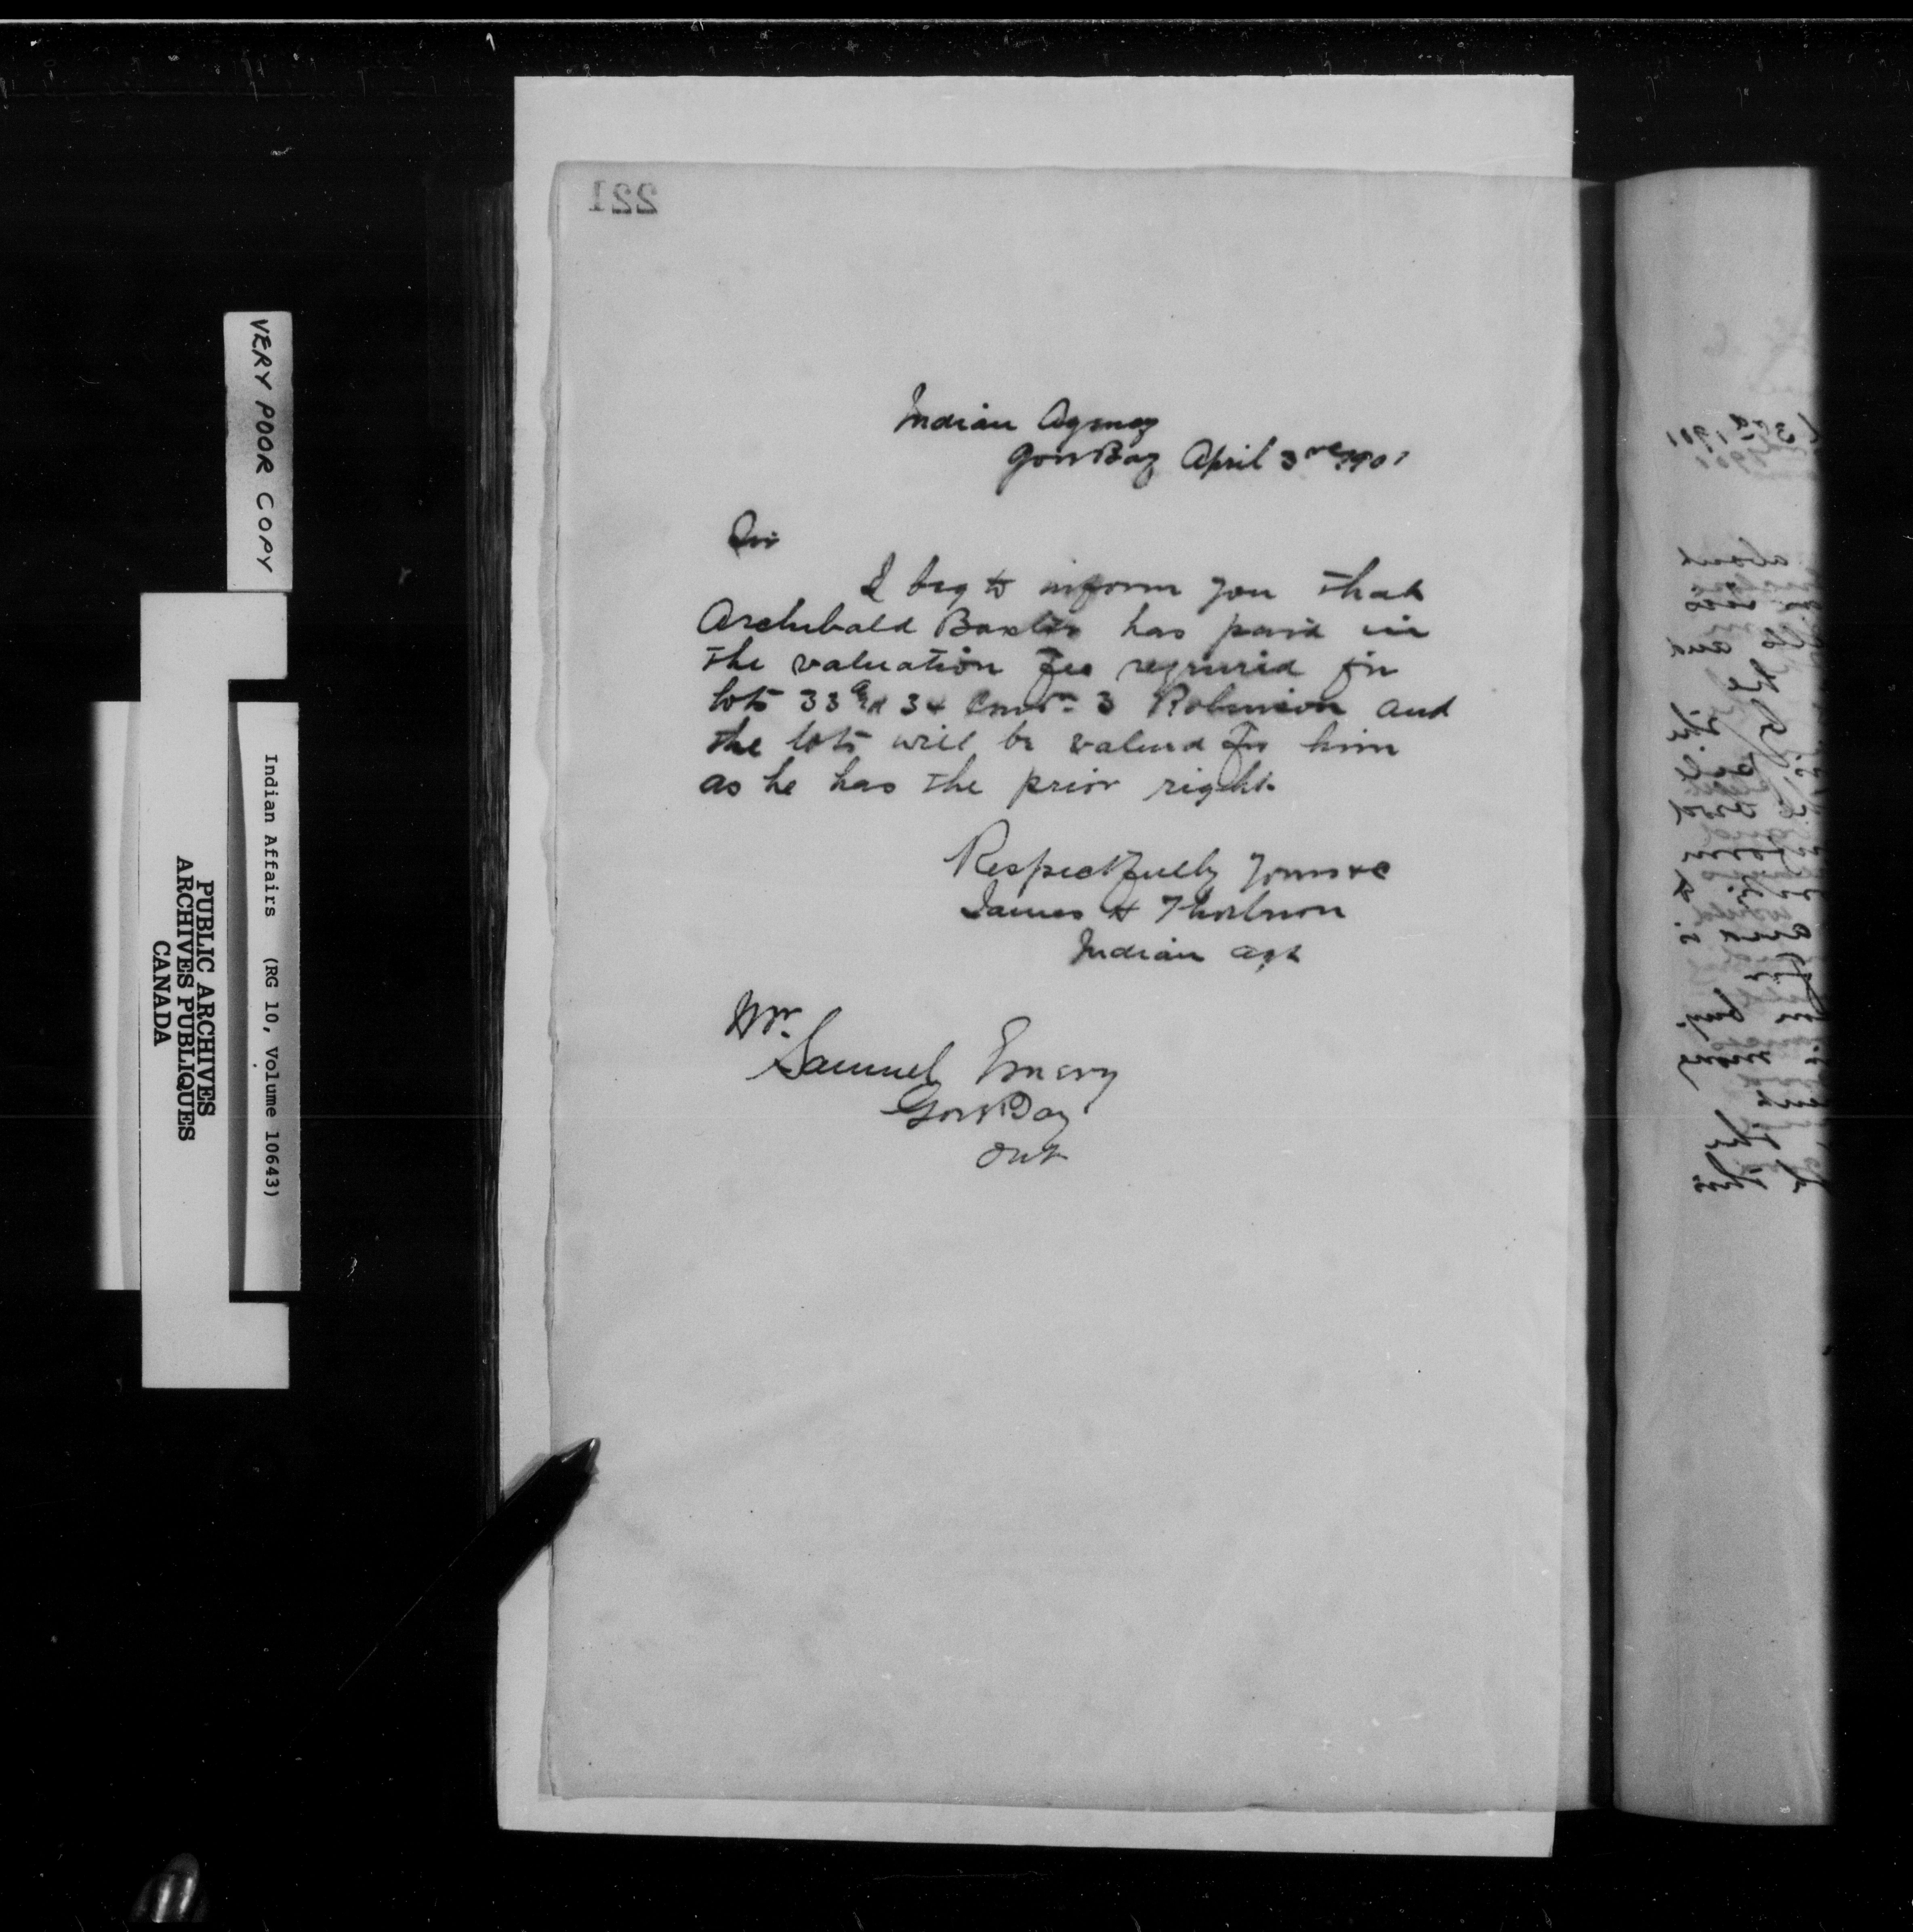 221
Indian Agency
Gore Bay April 3rd 1901
Sir
I beg to inform you that
Archibald Baxter has paid in
the valuation fee required for
lots 33 and 34 Con 3 Robinson and
the lots will be valued for him
as he has the prior right.
Respectfully Yours &c
James H Thorburn
Indian Agt
Mr.
Samuel Emery
Gore Bay
Ont
VERY POOR COPY
Indian Affairs (RG 10, Volume 10643)
PUBLIC ARCHIVES
ARCHIVES PUBLIQUES
CANADA